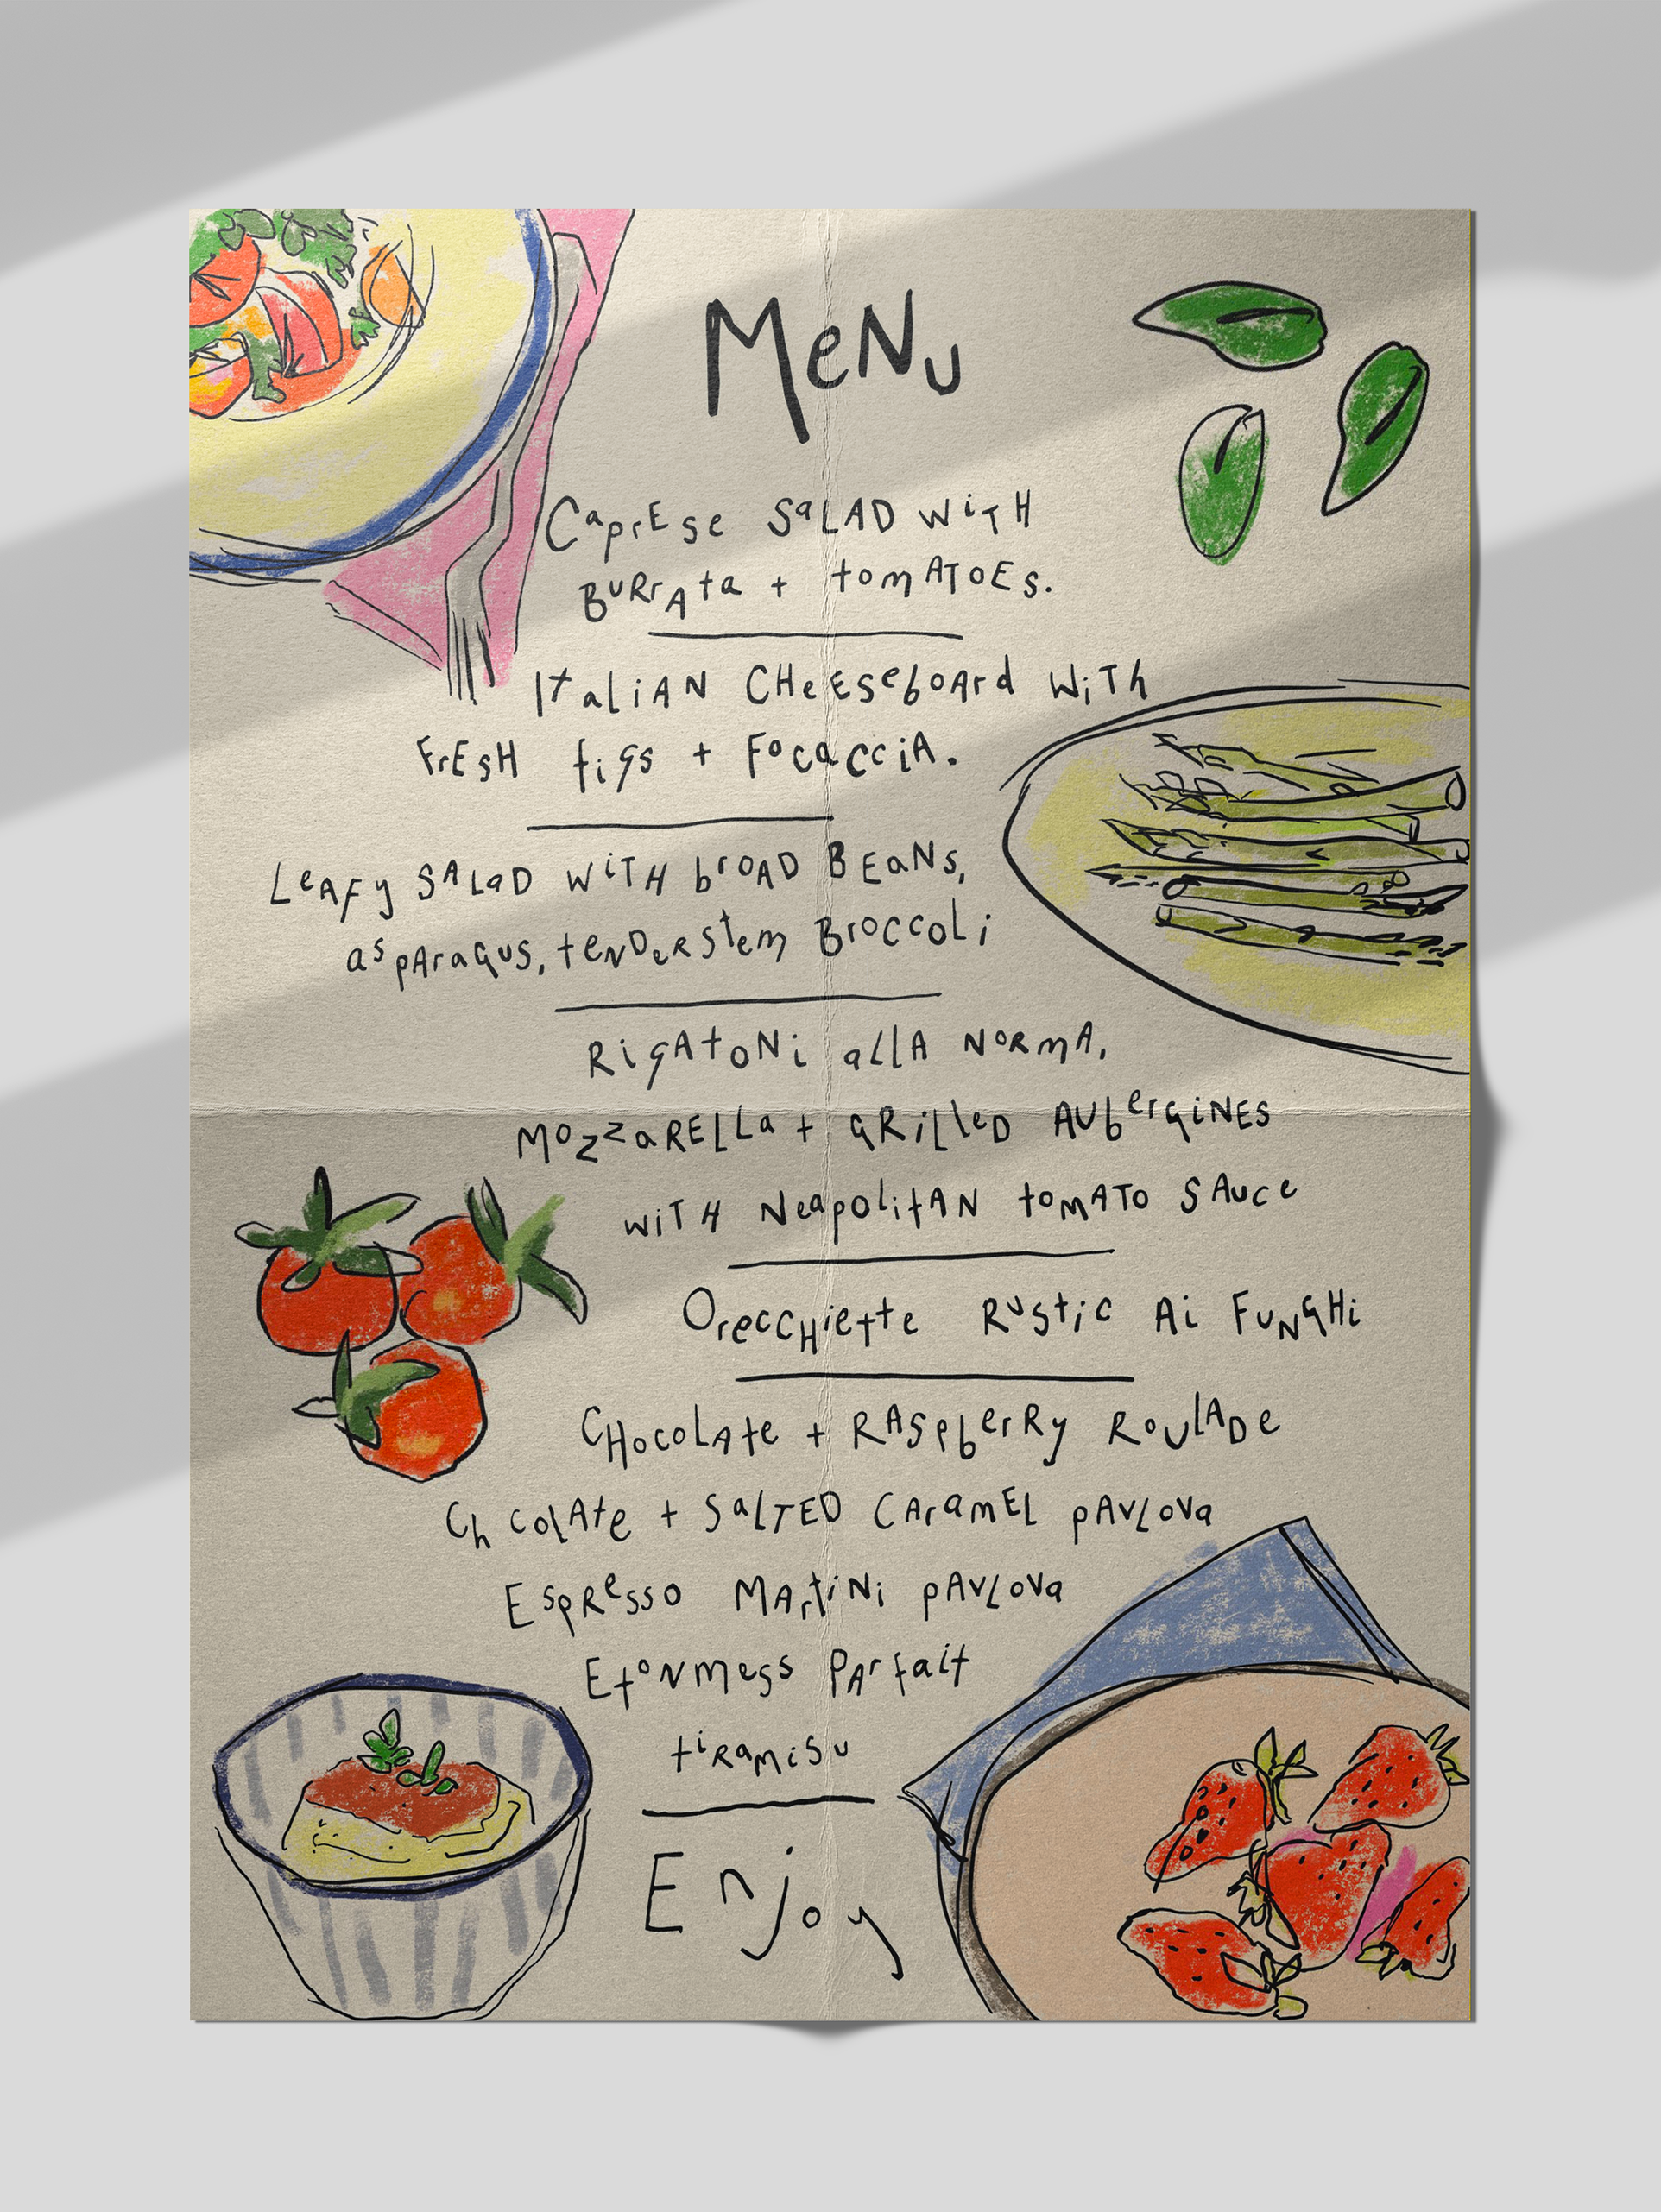 MeNu
CaprEse SaLAD WiTH
BuRrAta + tomATOEs.
ItaliAN CHeEseboArd WiTh
FrESH figs + FocacciA.
LeAFy SALaD WiTH broAD BEaNs,
asparaGus, tenDeRstem Broccoli
RigAtoNi allA NoRmA,
MozzaRELLa + GRilleD AubergiNEs
WiTH NeapolitAN tomATo SAuce
OrecCHiette Rustic Ai FuNGHi
CHocolAte + RAspberRy RoulADe
ChcolAte + SalTED CAramEL pAvLova
EspResso MArtiNi pAvLova
EtoNmess PArfait
tiRamisu
Enjoy